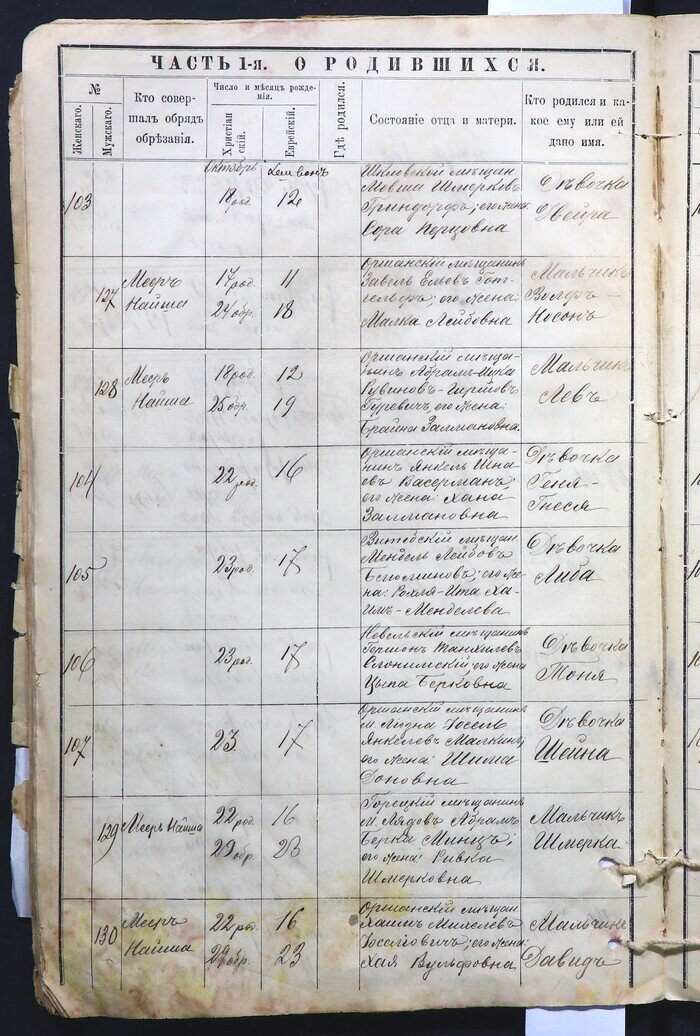 ЧАСТЬ 1-я. О РОДИВШИХСЯ.
№
Женскаго.
Мужскаго.
Кто совер-
шалъ обрядъ
обрѣзанія.
Число и мѣсяцъ рожде-
нія.
Христіан
скій.
Еврейскій.
Гдѣ родился.
Состояніе отца и матери.
Кто родился и ка-
кое ему или ей
дано имя.
103
Октябрь
18 род.
12
Шкловской мѣщан.
Мовша Шмерковъ
Гриндорфъ; его жена
Сора Перцовна
Дѣвочка
Двейра
127
Мееръ
Найша
17 род.
24 обр.
11
18
Оршанскій мѣщанинъ
Завель
его жена:
Малка Лейбовна
Мальчикъ
Волфъ-
Носонъ
128
Мееръ
Найша
18 род.
25 обр.
12
19
Оршанскій мѣща-
нинъ Абрамъ-Ицка
Рувиновъ-Гиршовъ
Гуревичъ, его жена:
Брайна Залмановна.
Мальчикъ
Левъ
104
22 род.
16
Оршанскій мѣща-
нинъ Янкель Шна-
евъ Васерманъ;
его жена: Хана
Залмановна
Дѣвочка
Геня-
Гнеся
105
23 род.
17
Витебскій мѣщан.
Мендель Лейбовъ
его же-
на: Ита Ха-
имъ-Менделева
Дѣвочка
Либа
106
23 род.
17
Невельскій мѣщанинъ
Танхилевъ
Слонимскій; его жена
Цыпа Берковна
Дѣвочка
Тоня
107
23
17
Оршанскій мѣщанинъ
м. Лядна Іосель
Янкелевъ Малкинъ;
его жена: Шима
Доновна
Дѣвочка
Шейна
129
Мееръ Найша
22 род.
29 обр.
16
23
Горецкій мѣщанинъ
м. Лядовъ Абрамъ
Берка Минцъ;
его жена: Ривка
Шмерковна
Мальчикъ
Шмерка
130
Мееръ
Найша
22 род.
29 обр.
16
23
Оршанскій мѣщан.
Хаимъ
его жена:
Хая Вульфовна
Мальчикъ
Давидъ